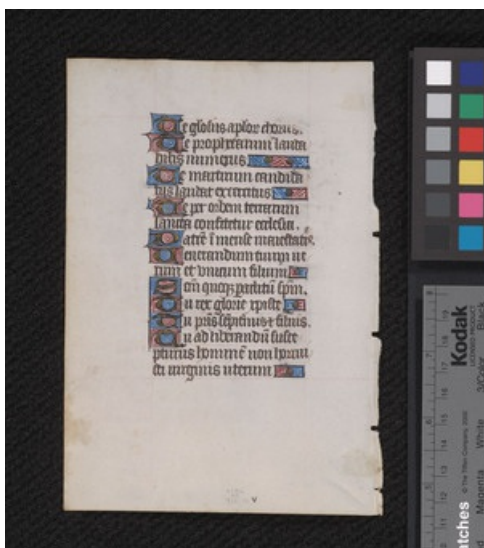 Te glosus aplor chorus.
Te prophetarum lauda
bilis numerus
Te martirum candida
tus laudat exercitus
Te per orbem terrarum
sancta confitetur ecclesia.
Patrē īmense maiestatis.
Venerandum tuum ve
rum et vnicum filium
Sctm quoqz paclitū spm.
Tu rex glorie xpiste
Tu pris sēpitnus es filius.
Tu ad liberandū susce
pturus hominē non horru
isti virginis vterum
v
Kodak
LICENSED PRODUCT
Black
3/Color
White
Magenta
© The Tiffen Company, 2000